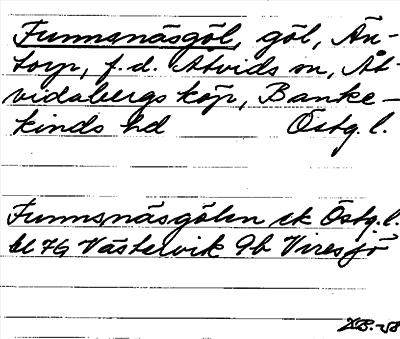 Funnsnäsgöl, göl, Än-
torp, f.d. Åtvids sn, Åt-
vidabergs köp, Banke-
kinds hd Östg. l.
Funnsnäsgölen ek Östg. l.
bl 76 Västervik 9b Viresjö